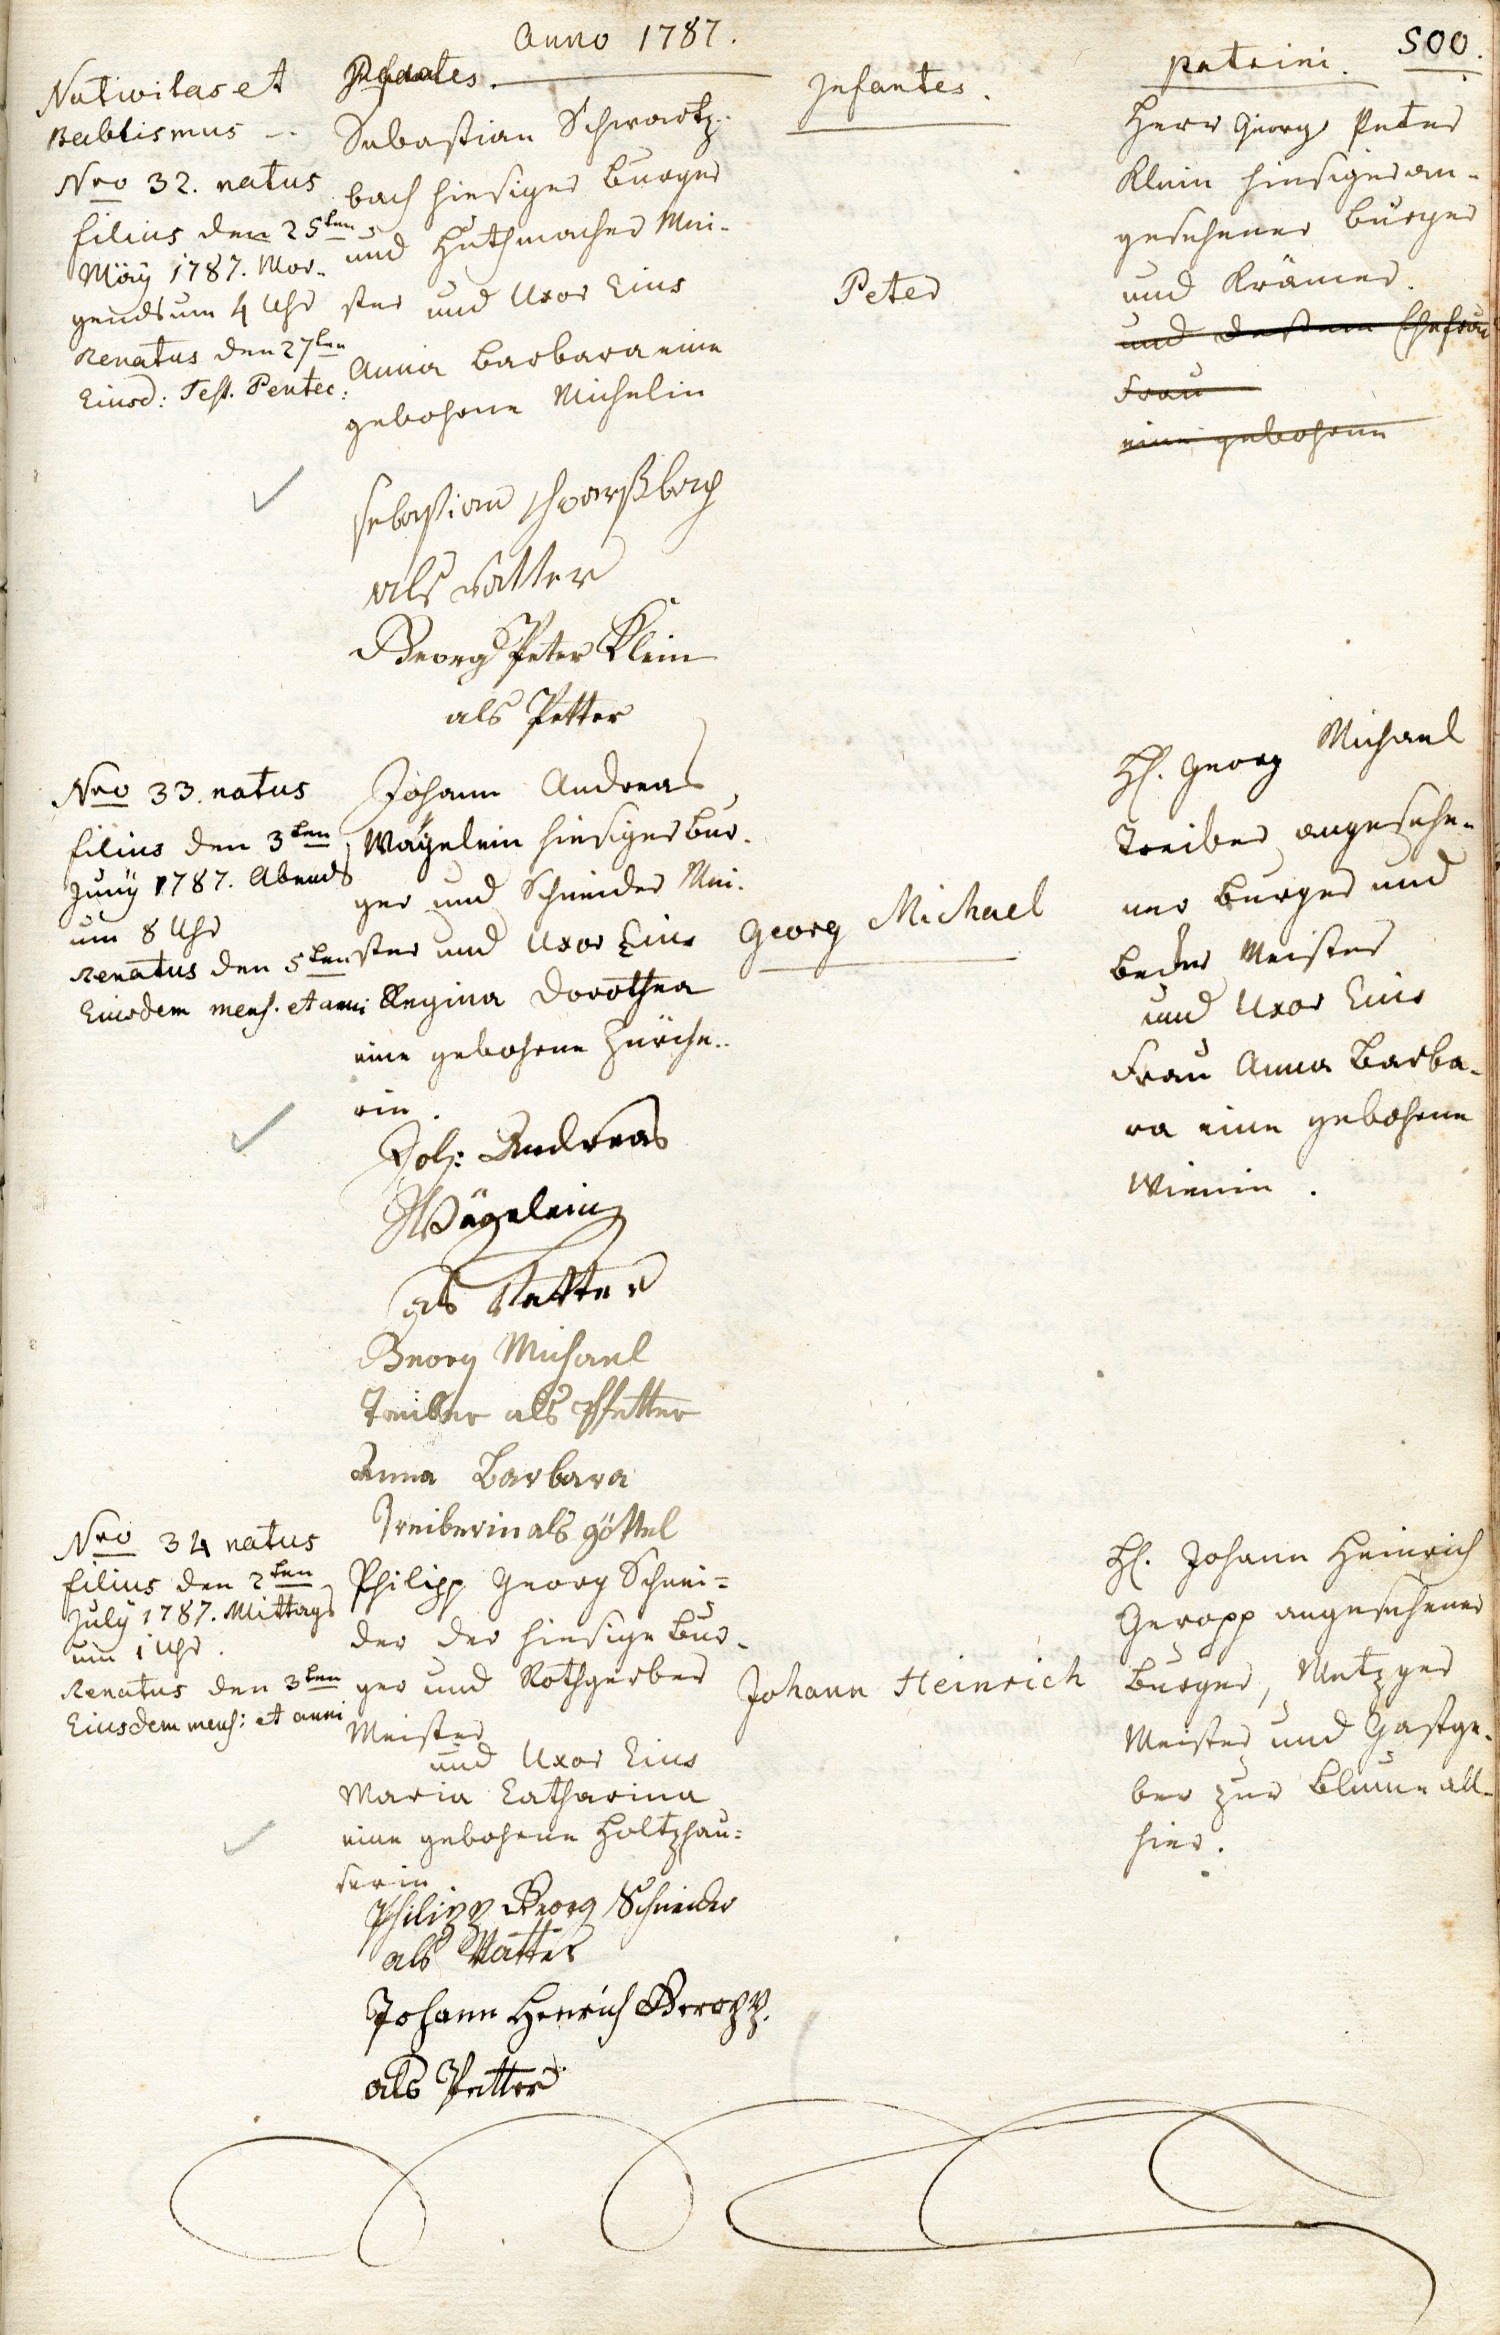 Anno 1787.
500.
Nativitas et
Babtismus -.
Nro 32. natus
filius den 25ten
Mäÿ 1787. Mor-
gends um 4 Uhr
Renatus den 27ten
Eiusd: Fest. Pentec:
Sebastian Schwartz-
bach hiesiger Burger
und Huthmacher Mei-
ster und Uxor Eius
Anna Barbara eine
gebohrne Michelin
Infantes.
Peter
patrini.
Herr Georg Peter
Klein hiesiger an-
gesehener Burger
und Krämer.
und dessen Ehefrau
Frau
eine gebohrne
Sebastian Schwartzbach
als Vatter
Georg Peter Klein
als Petter
Nro 33. natus
filius den 3ten
Junÿ 1787. Abends
um 8 Uhr
Renatus den 5ten
Eiusdem mens. et anni
Johann Andreas
Wägelein hiesiger Bur-
ger und Schneider Mei-
ster und Uxor Eius
Regina Dorothea
eine gebohrne Zürche-
rin.
Georg Michael
H. Georg Michael
Treiber angesehe-
ner Burger und
Becker Meister
und Uxor Eius
Frau Anna Barba-
ra eine gebohrne
Joh: Andreas
Wägelein
als Vatter
Georg Michael
Treiber als Pfetter
Anna Barbara
Treiberin als göttel
Nro 34 natus
filius den 2ten
Julÿ 1787. Mittags
um 1 Uhr.
Renatus den 3ten
Eiusdem mens: et anni
Philipp Georg Schnei=
der der hiesige Bur-
ger und Rothgerber
Meister
und Uxor Eius
Maria Catharina
eine gebohrne Holtzhau=
serin.
Johann Heinrich
H. Johann Heinrich
Geropp angesehener
Burger, Metzger
Meister und Gastge-
ber zur Blume all-
hier.
Philipp Georg Schneider
als Vatter
Johann Henrich Geropp.
als Petter